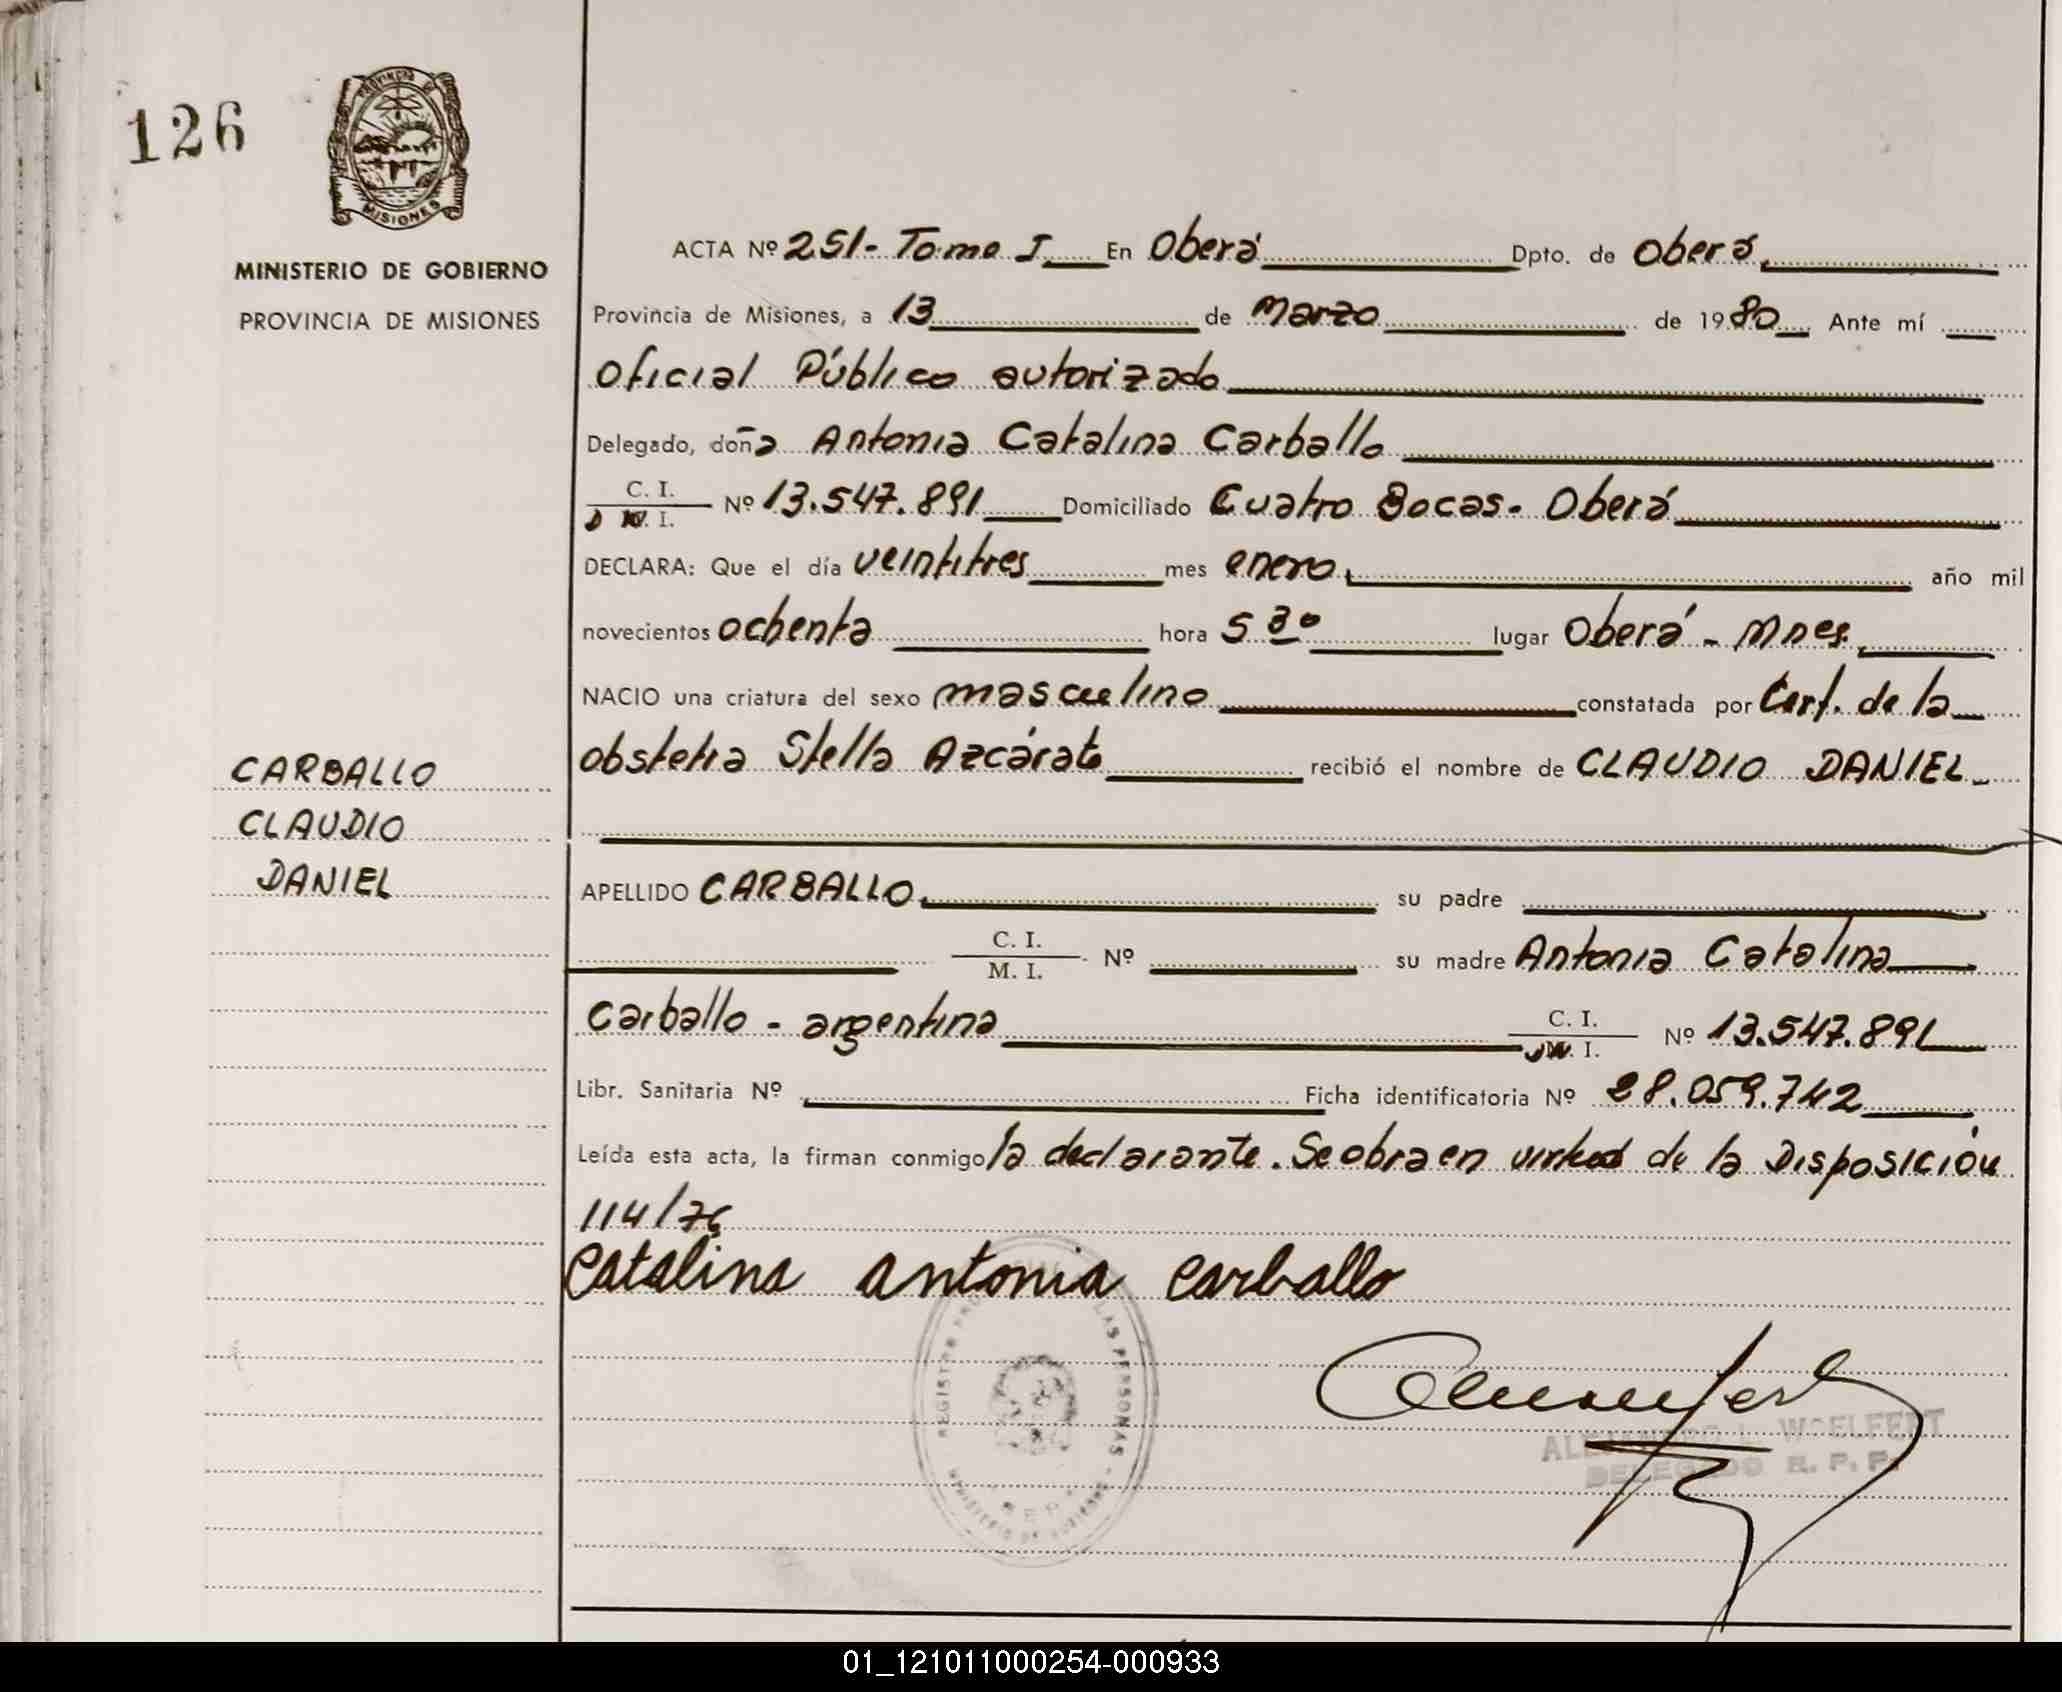 126
PROVINCIA DE
MISIONES
MINISTERIO DE GOBIERNO
PROVINCIA DE MISIONES
CARBALLO
CLAUDIO
DANIEL
ACTA Nº 251- Tomo I En Oberá Dpto. de Oberá
Provincia de Misiones, a 13 de Marzo de 1980 Ante mí
Oficial Público autorizado
Delegado, doña Antonia Catalina Carballo
C. I.
Nº 13.547.891 Domiciliado Cuatro Bocas- Oberá
I.
DECLARA: Que el día veintitres mes enero año mil
novecientos ochenta hora 5 30 lugar Oberá - Mnes.
NACIO una criatura del sexo masculino constatada por Cert. de la
obstetra Stella Azcárate recibió el nombre de CLAUDIO DANIEL
APELLIDO CARBALLO su padre
C. I.
M. I. Nº su madre Antonia Catalina
Carballo - argentina C. I.
I. Nº 13.547.891
Libr. Sanitaria Nº Ficha identificatoria Nº 28.059.742
Leída esta acta, la firman conmigo la declarante. Se obra en virtud de la Disposición
114/76
Catalina antonia carballo
REGISTRO LAS PERSONAS
ALEJANDRO WOELFERT
DELEGADO R. P. P.
01_121011000254-000933